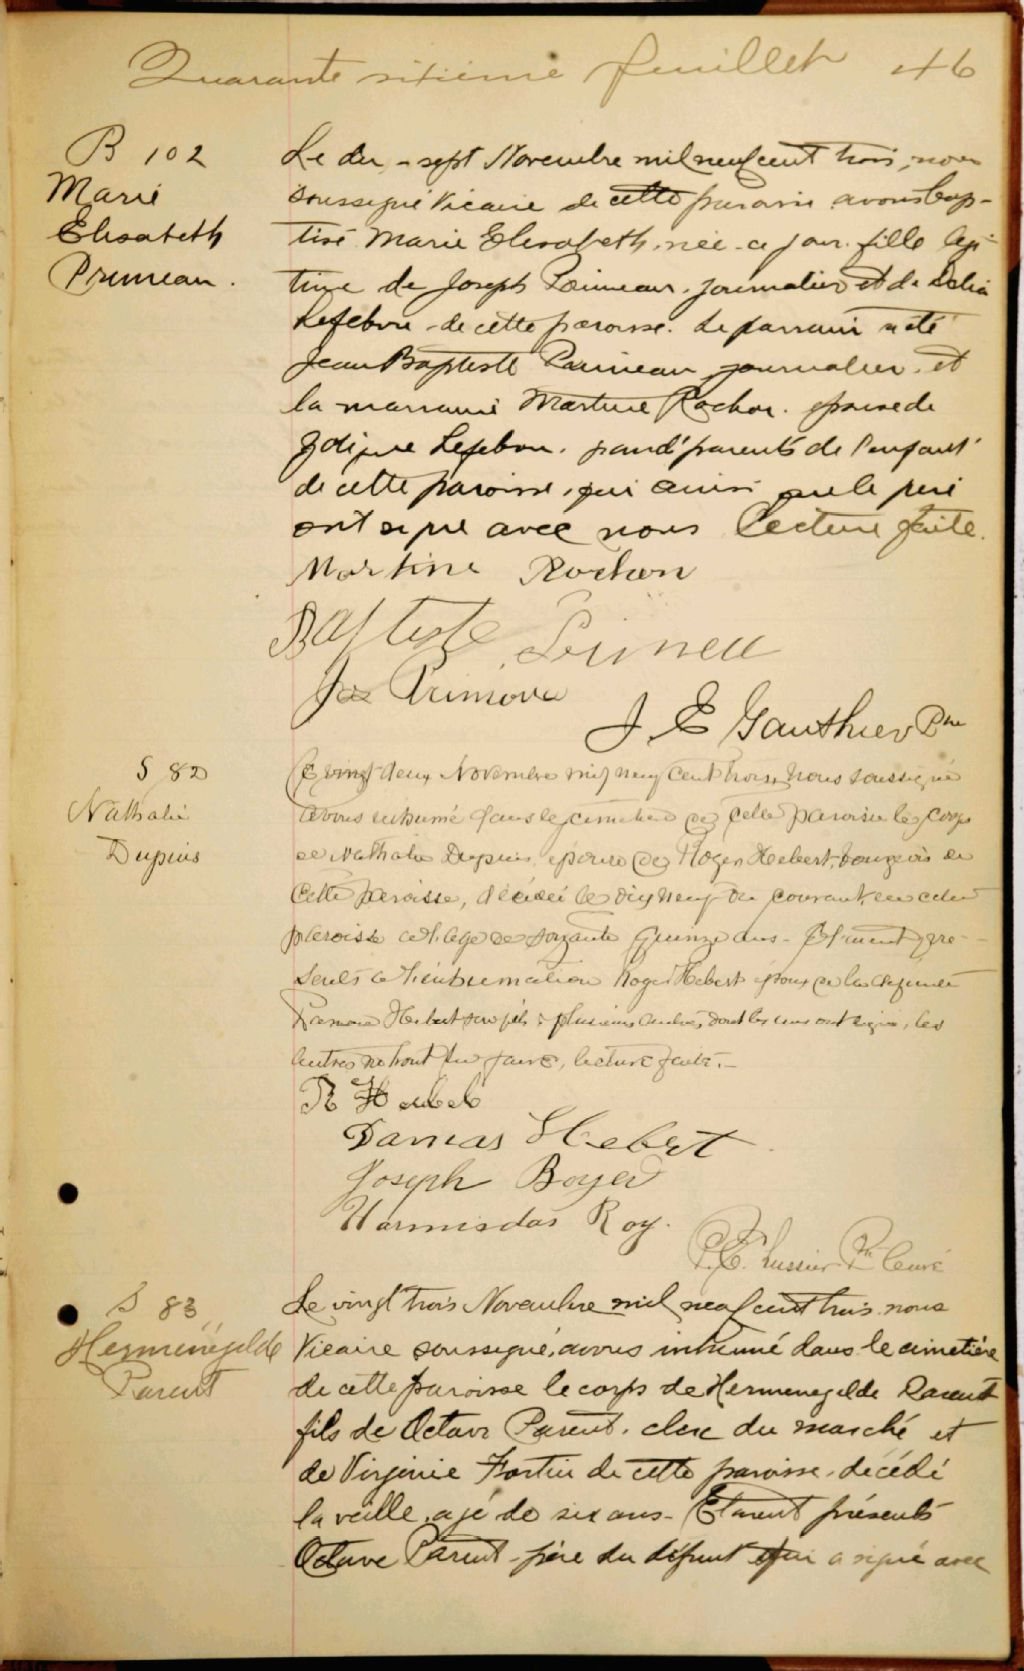 Quarante sixième feuillet 46
B 102
Marie
Elisabeth
Primeau.
Le dix-sept Novembre mil neuf cent trois, nous
soussigné Vicaire de cette paroisse avons bap-
tisé Marie Elisabeth, née ce jour, fille légi-
time de Joseph Primeau, journalier et de Delia
Lefebvre de cette paroisse. Le parrain a été
Jean Baptiste Primeau journalier, et
la marraine Martine Rochon. épouse de
Lefebvre. grand'parents de l'enfant
de cette paroisse, qui ainsi que le père
ont signé avec nous Lecture faite.
Martine Rochon
Baptiste Primeau
Jos Primeau
J. E Gauthier Ptre
S 82
Nathalie
Dupuis
Le vingt deux Novembre mil neuf cent trois, nous soussigné
avons inhumé dans le cimetière de cette paroisse le corps
de Nathalie Dupuis, épouse de Roger Hebert, bourgeois de
cette paroisse, décédée le dix neuf du courant en cette
paroisse à l'âge de soixante quinze ans. Etaient pré-
sents à l'inhumation Roger Hebert époux de la défunte
Hebert son fils & plusieurs autres, dont les uns ont signé, les
autres ne l'ont pu faire, lecture faite.-
R Hebert
Damas Hebert
Joseph Boyer
Hormisdas Roy.
P. E. Lussier Ptre Curé
S 83
Hermenégilde
Parent
Le vingt trois Novembre mil neuf cent trois nous
Vicaire soussigné, avons inhumé dans le cimetière
de cette paroisse le corps de Hermenegilde Parent
fils de Octave Parent, clerc du marché et
de Virginie Fortin de cette paroisse, décédé
la veille, agé de six ans. Etaient présents
Octave Parent père du défunt qui a signé avec